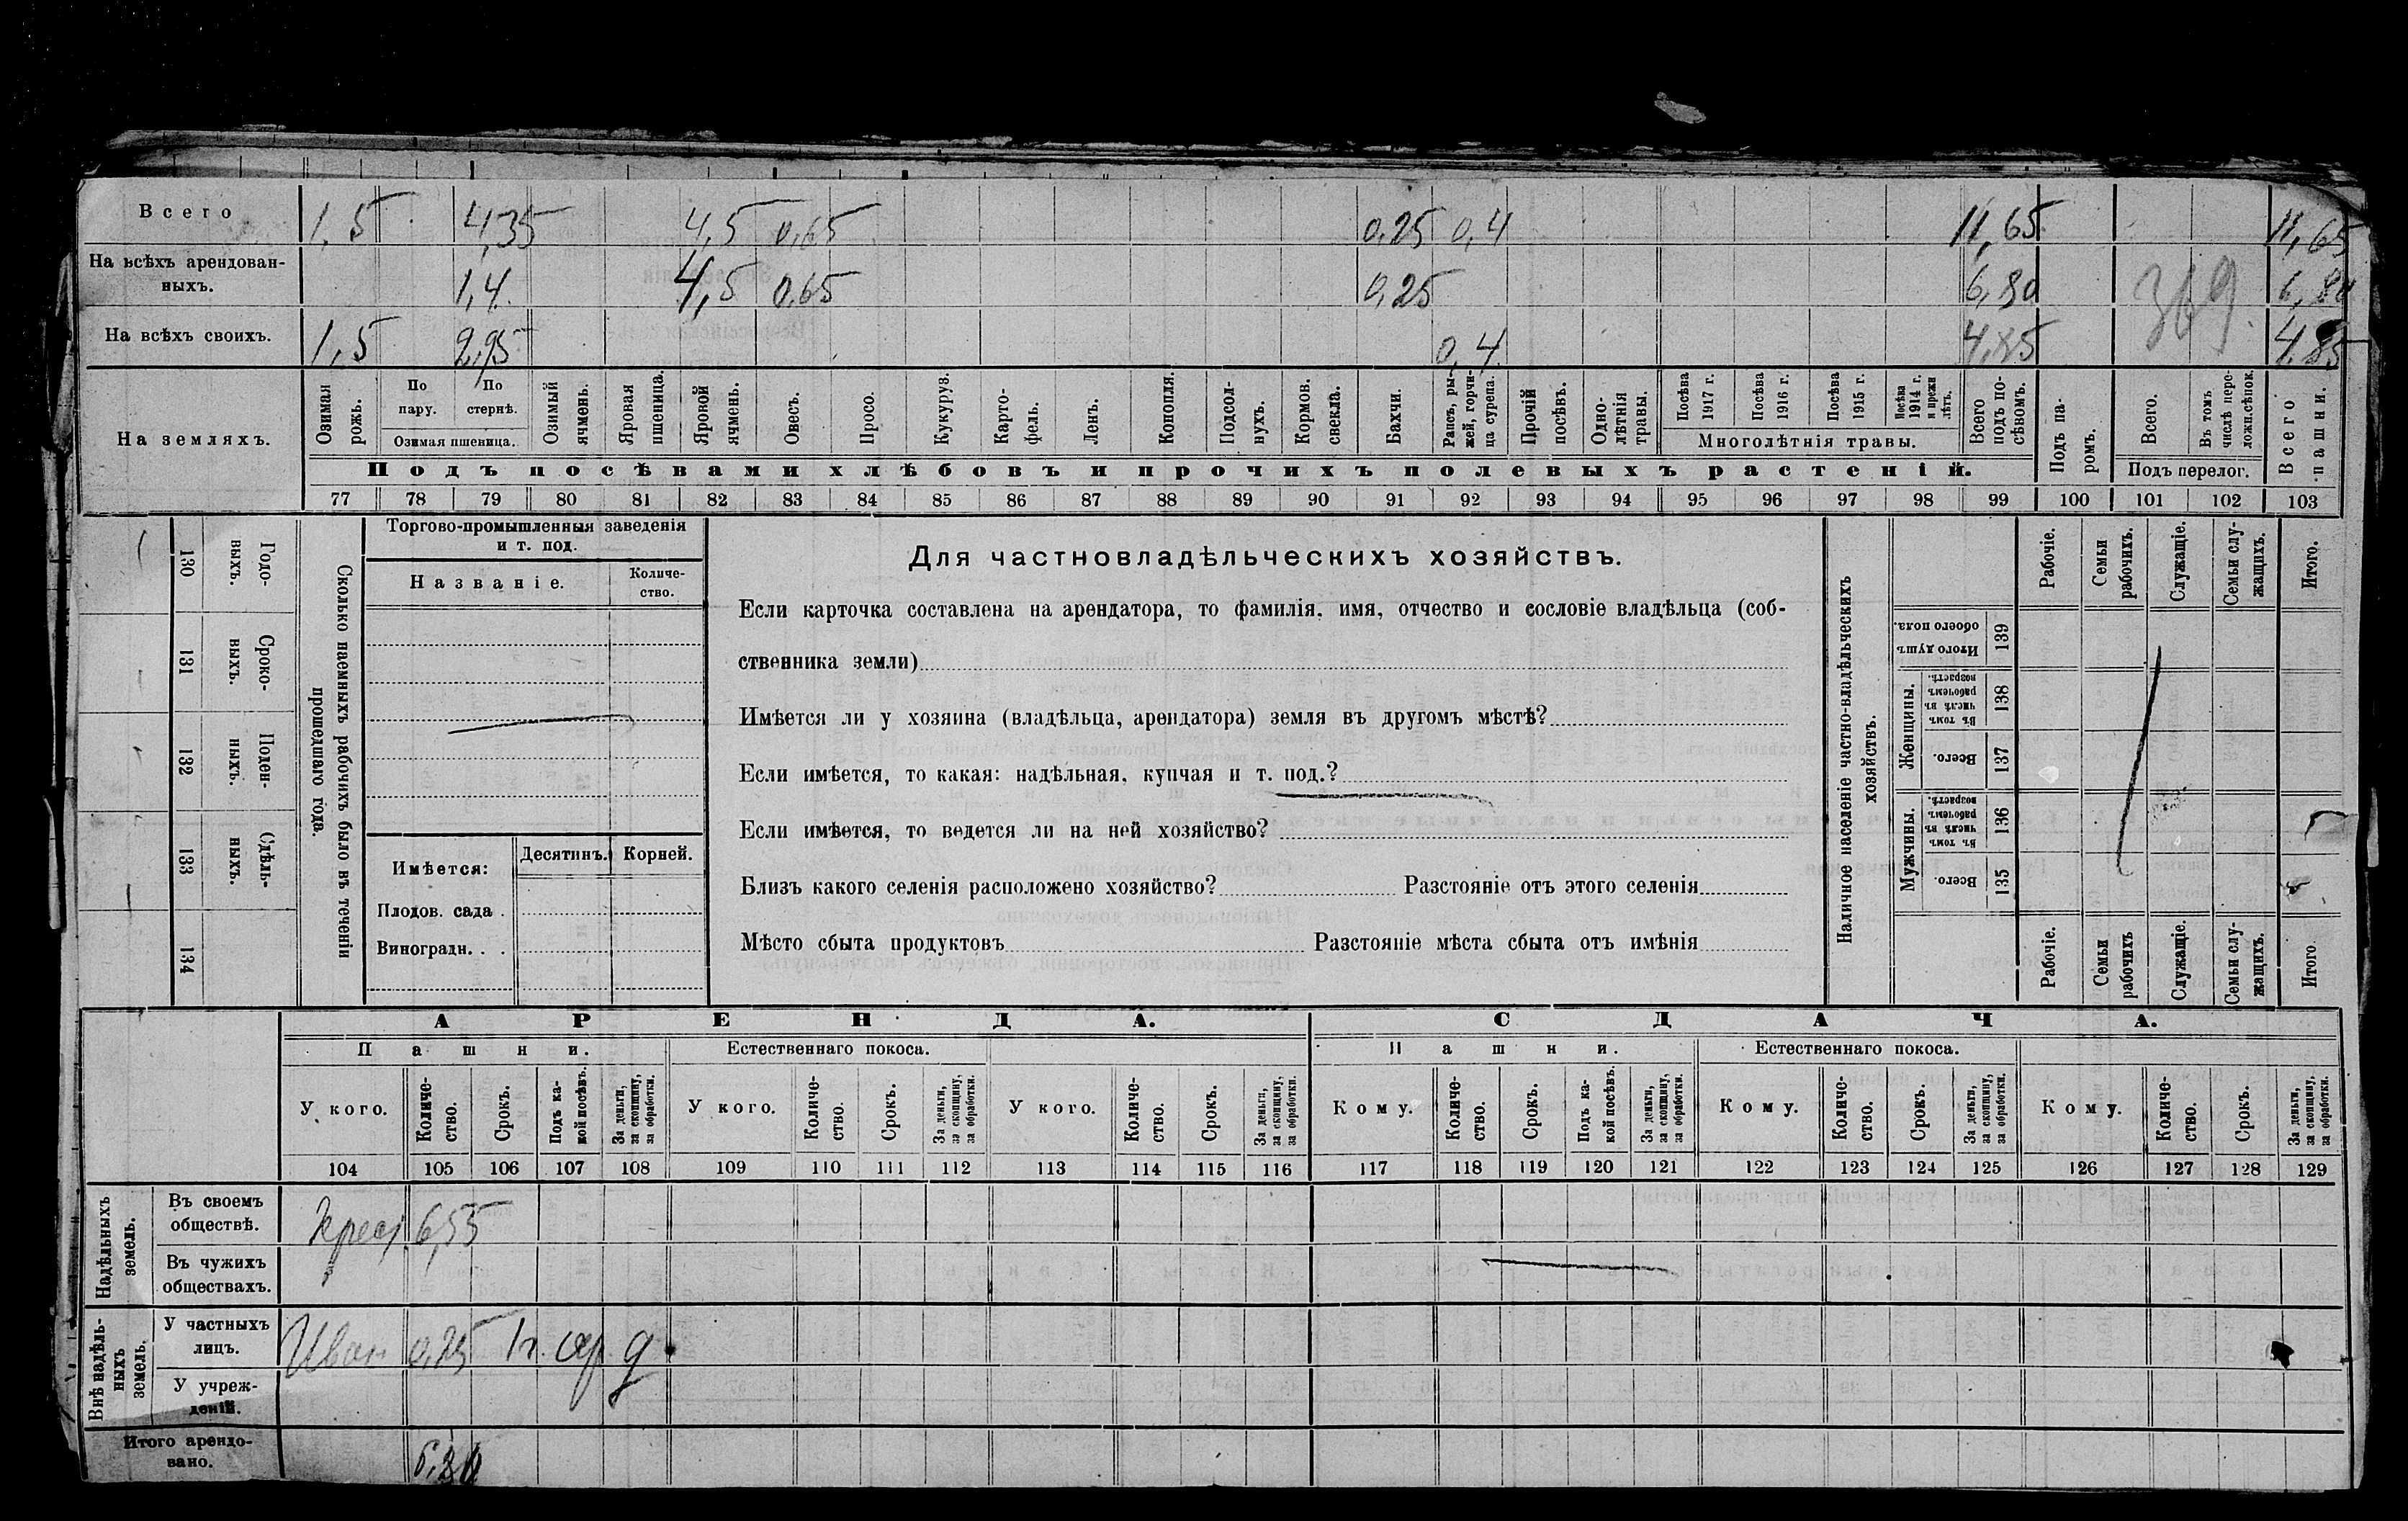 Всего 1,5 4,35 4,5 0,65 0,25 0,4 11,65 11,65
На всѣхъ арендован-
ныхъ. 1,4 4,5 0,65 0,25 6,80 6,80
369
На всѣхъ своихъ. 1,5 2,95 0,4 4,85 4,85
На земляхъ.
Озимая рожь.
По пару.
По стернѣ.
Озимая пшеница.
Озимый ячмень.
Яровая пшеница.
Яровой ячмень.
Овесъ.
Просо.
Кукуруз.
Карто-
фель.
Ленъ.
Конопля.
Подсол-
нухъ.
Кормов. свекла.
Бахчи.
Рапсъ, ры-
жей, горчи-
ца сурепа.
Прочій посѣвъ.
Одно-
лѣтнія травы.
Посѣва 1917 г.
Посѣва 1916 г.
Посѣва 1915 г.
Посѣва 1914 г. и прежн лѣтъ.
Многолѣтнія травы.
Всего подъ по-
сѣвомъ.
Подъ па-
ромъ.
Всего.
Въ томъ числѣ пере-
ложн. сѣнок.
Подъ перелог.
Всего пашни.
Подъ посѣвами хлѣбовъ и прочихъ полевыхъ растеній.
77 78 79 80 81 82 83 84 85 86 87 88 89 90 91 92 93 94 95 96 97 98 99 100 101 102 103
130 Годо-
выхъ.
131 Сроко-
ныхъ.
132 Поден-
ныхъ.
133 Сдѣль-
ныхъ.
134
Сколько наемныхъ рабочихъ было въ теченіи
прошедшаго года.
Торгово-промышленныя заведенія
и т. под.
Названіе.
Количе-
ство.
Имѣется: Десятинъ. Корней.
Плодов. сада .
Виноградн. . .
Для частновладѣльческихъ хозяйствъ.
Если карточка составлена на арендатора, то фамилія, имя, отчество и сословіе владѣльца (соб-
ственника земли)
Имѣется ли у хозяина (владѣльца, арендатора) земля въ другомъ мѣстѣ?
Если имѣется, то какая: надѣльная, купчая и т. под.?
Если имѣется, то ведется ли на ней хозяйство?
Близъ какого селенія расположено хозяйство? Разстояніе отъ этого селенія
Мѣсто сбыта продуктовъ Разстояніе мѣста сбыта отъ имѣнія
Наличное населеніе частно-владѣльческихъ
хозяйствъ.
Рабочіе.
Семьи рабочихъ.
Служащіе.
Семьи слу-
жащихъ.
Итого.
Итого душъ обоего пола. 139
Женщины.
Въ томъ числѣ въ рабочемъ возрастѣ. 138
Всего. 137
Мужчины.
Въ томъ числѣ въ рабочемъ возрастѣ. 136
Всего. 135
Рабочіе.
Семьи рабочихъ
Служащіе.
Семьи слу-
жащихъ.
Итого
АРЕНДА. СДАЧА.
Пашни. Естественнаго покоса. Пашни. Естественнаго покоса.
У кого.
Количе-
ство.
Срокъ.
Подъ ка-
кой посѣвъ.
За деньги, за скопщину, за обработки.
У кого.
Количе-
ство.
Срокъ.
За деньги, за скопщину, за обработки.
У кого.
Количе-
ство.
Срокъ.
За деньги, за скопщину, за обработки.
Кому.
Количе-
ство.
Срокъ.
Подъ ка-
кой посѣвъ.
За деньги, за скопщину, за обработки.
Кому.
Количе-
ство.
Срокъ.
За деньги, за скопщину, за обработки.
Кому.
Количе-
ство.
Срокъ.
За деньги, за скопщину, за обработки.
104 105 106 107 108 109 110 111 112 113 114 115 116 117 118 119 120 121 122 123 124 125 126 127 128 129
Надѣльныхъ земель.
Въ своемъ
обществѣ. Крест 6,55
Въ чужихъ
обществахъ.
Внѣ надѣль-
ныхъ земель.
У частныхъ
лицъ. Иван 0,25
У учреж-
деній.
Итого арендо-
вано. 6,80